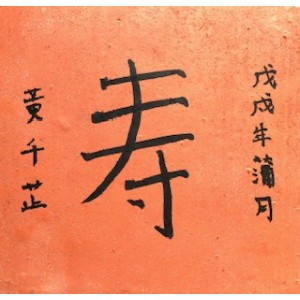 戊戌年蒲月
寿
黄千芷